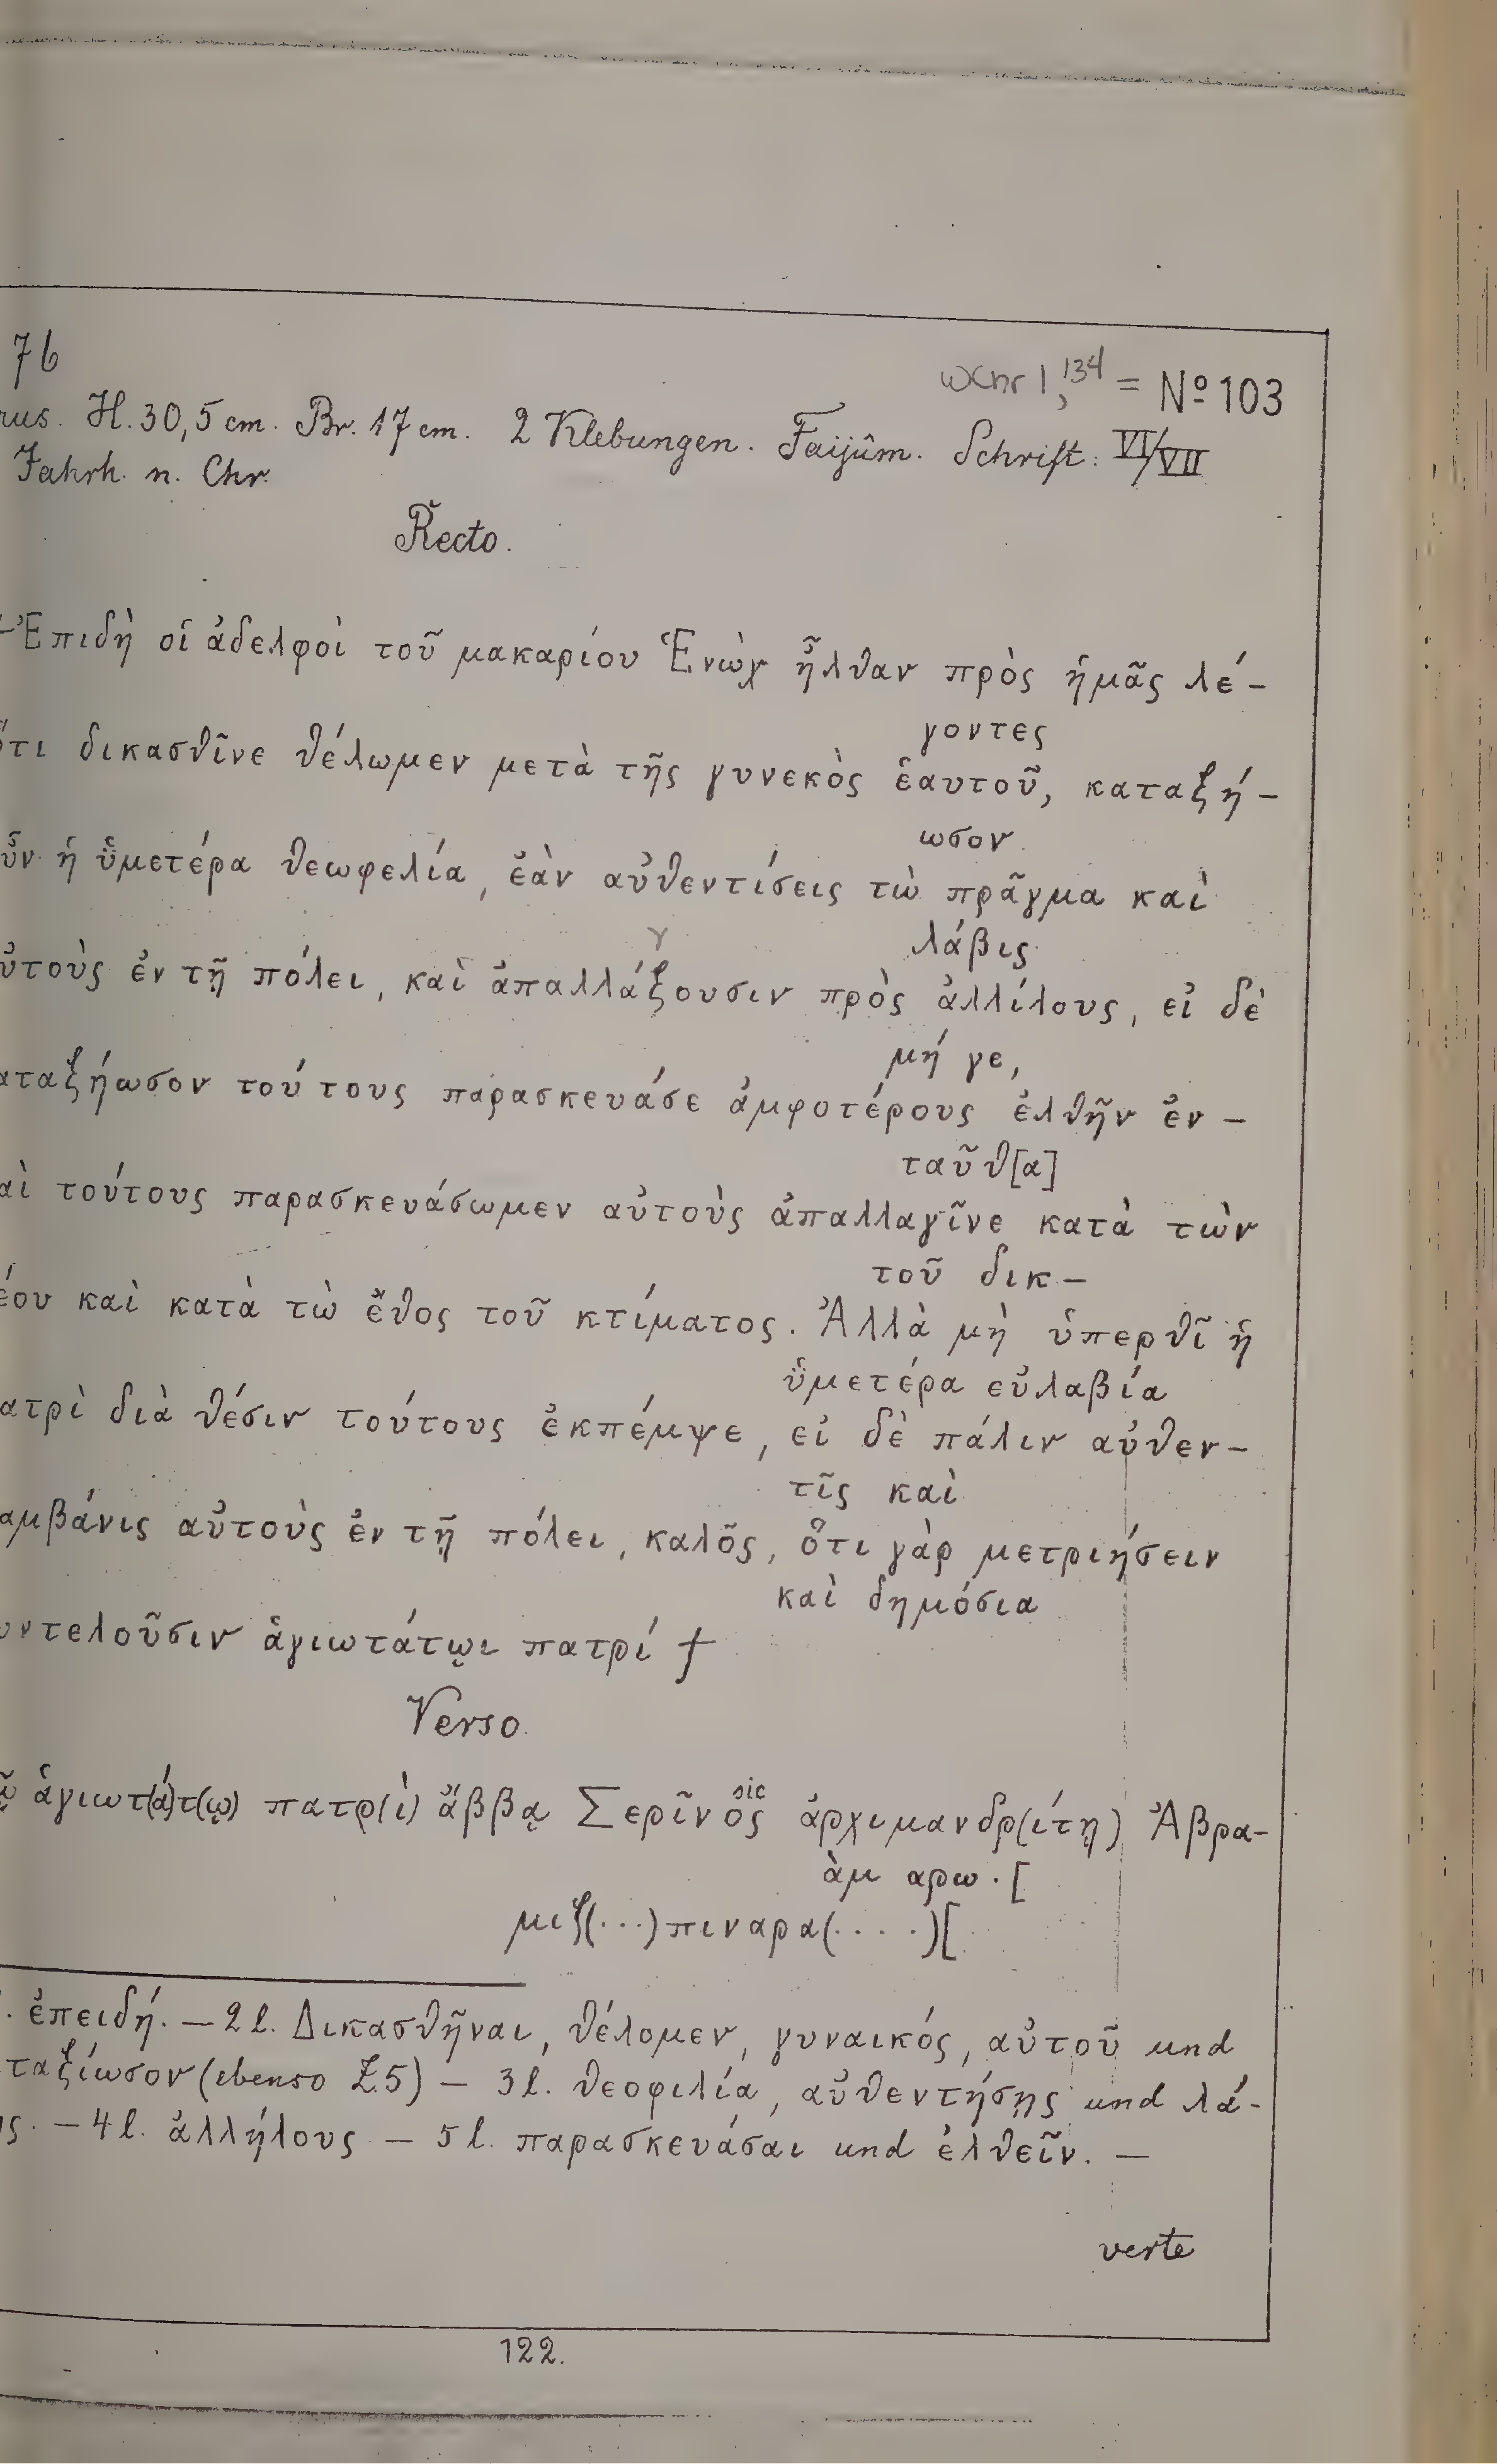 76
wchr I, 134 = No 103
rus. H. 30,5 cm. Br. 17 cm. 2 Klebungen. Faijûm. Schrift: VI/VII
Jahrh. n. Chr.
Recto.
Ἐπιδὴ οἱ ἀδελφοὶ τοῦ μακαρίου Ἑνὼχ ἦλθαν πρὸς ἡμᾶς λέ-
γοντες
ὅτι δικασθῖνε θέλωμεν μετὰ τῆς γυνεκὸς ἑαυτοῦ, καταξή-
ωσον
ὖν ἡ ὑμετέρα θεωφελία, ἐὰν αὐθεντίσεις τὼ πρᾶγμα καὶ
λάβις
ὐτοὺς ἐν τῇ πόλει, καὶ ἀπαλλάξουσιν πρὸς ἀλλίλους, εἰ δὲ
γ
μή γε,
αταξήωσον τούτους παρασκευάσε ἀμφοτέρους ἐλθῆν ἐν-
ταῦθ[α]
αὶ τούτους παρασκευάσωμεν αὐτοὺς ἀπαλλαγῖνε κατὰ τὼν
τοῦ δικ-
έου καὶ κατὰ τὼ ἔθος τοῦ κτίματος. Ἀλλὰ μὴ ὑπερθῖ ἡ
ὑμετέρα εὐλαβία
ατρὶ διὰ θέσιν τούτους ἐκπέμψε, εἰ δὲ πάλιν αὐθεν-
τῖς καὶ
αμβάνις αὐτοὺς ἐν τῇ πόλει, καλο͂ς, ὅτι γὰρ μετριήσειν
καὶ δημόσια
υντελοῦσιν ἁγιωτάτῳι πατρί ϯ
Verso.
ῷ ἁγιωτ(ά)τ(ῳ) πατρ(ὶ) ἄββᾳ Σερῖνος ἀρχιμανδρ(ίτῃ) Ἀβρα-
sic
ὰμ αρω.[
μιζ(...)πιναρα(....)[
. ἐπειδή. — 2 l. Δικασθῆναι, θέλομεν, γυναικός, αὐτοῦ und
ταξίωσον (ebenso Z. 5) — 3 l. θεοφιλία, αὐθεντήσῃς und λά-
ς. — 4 l. ἀλλήλους — 5 l. παρασκευάσαι und ἐλθεῖν. —
verte
122.